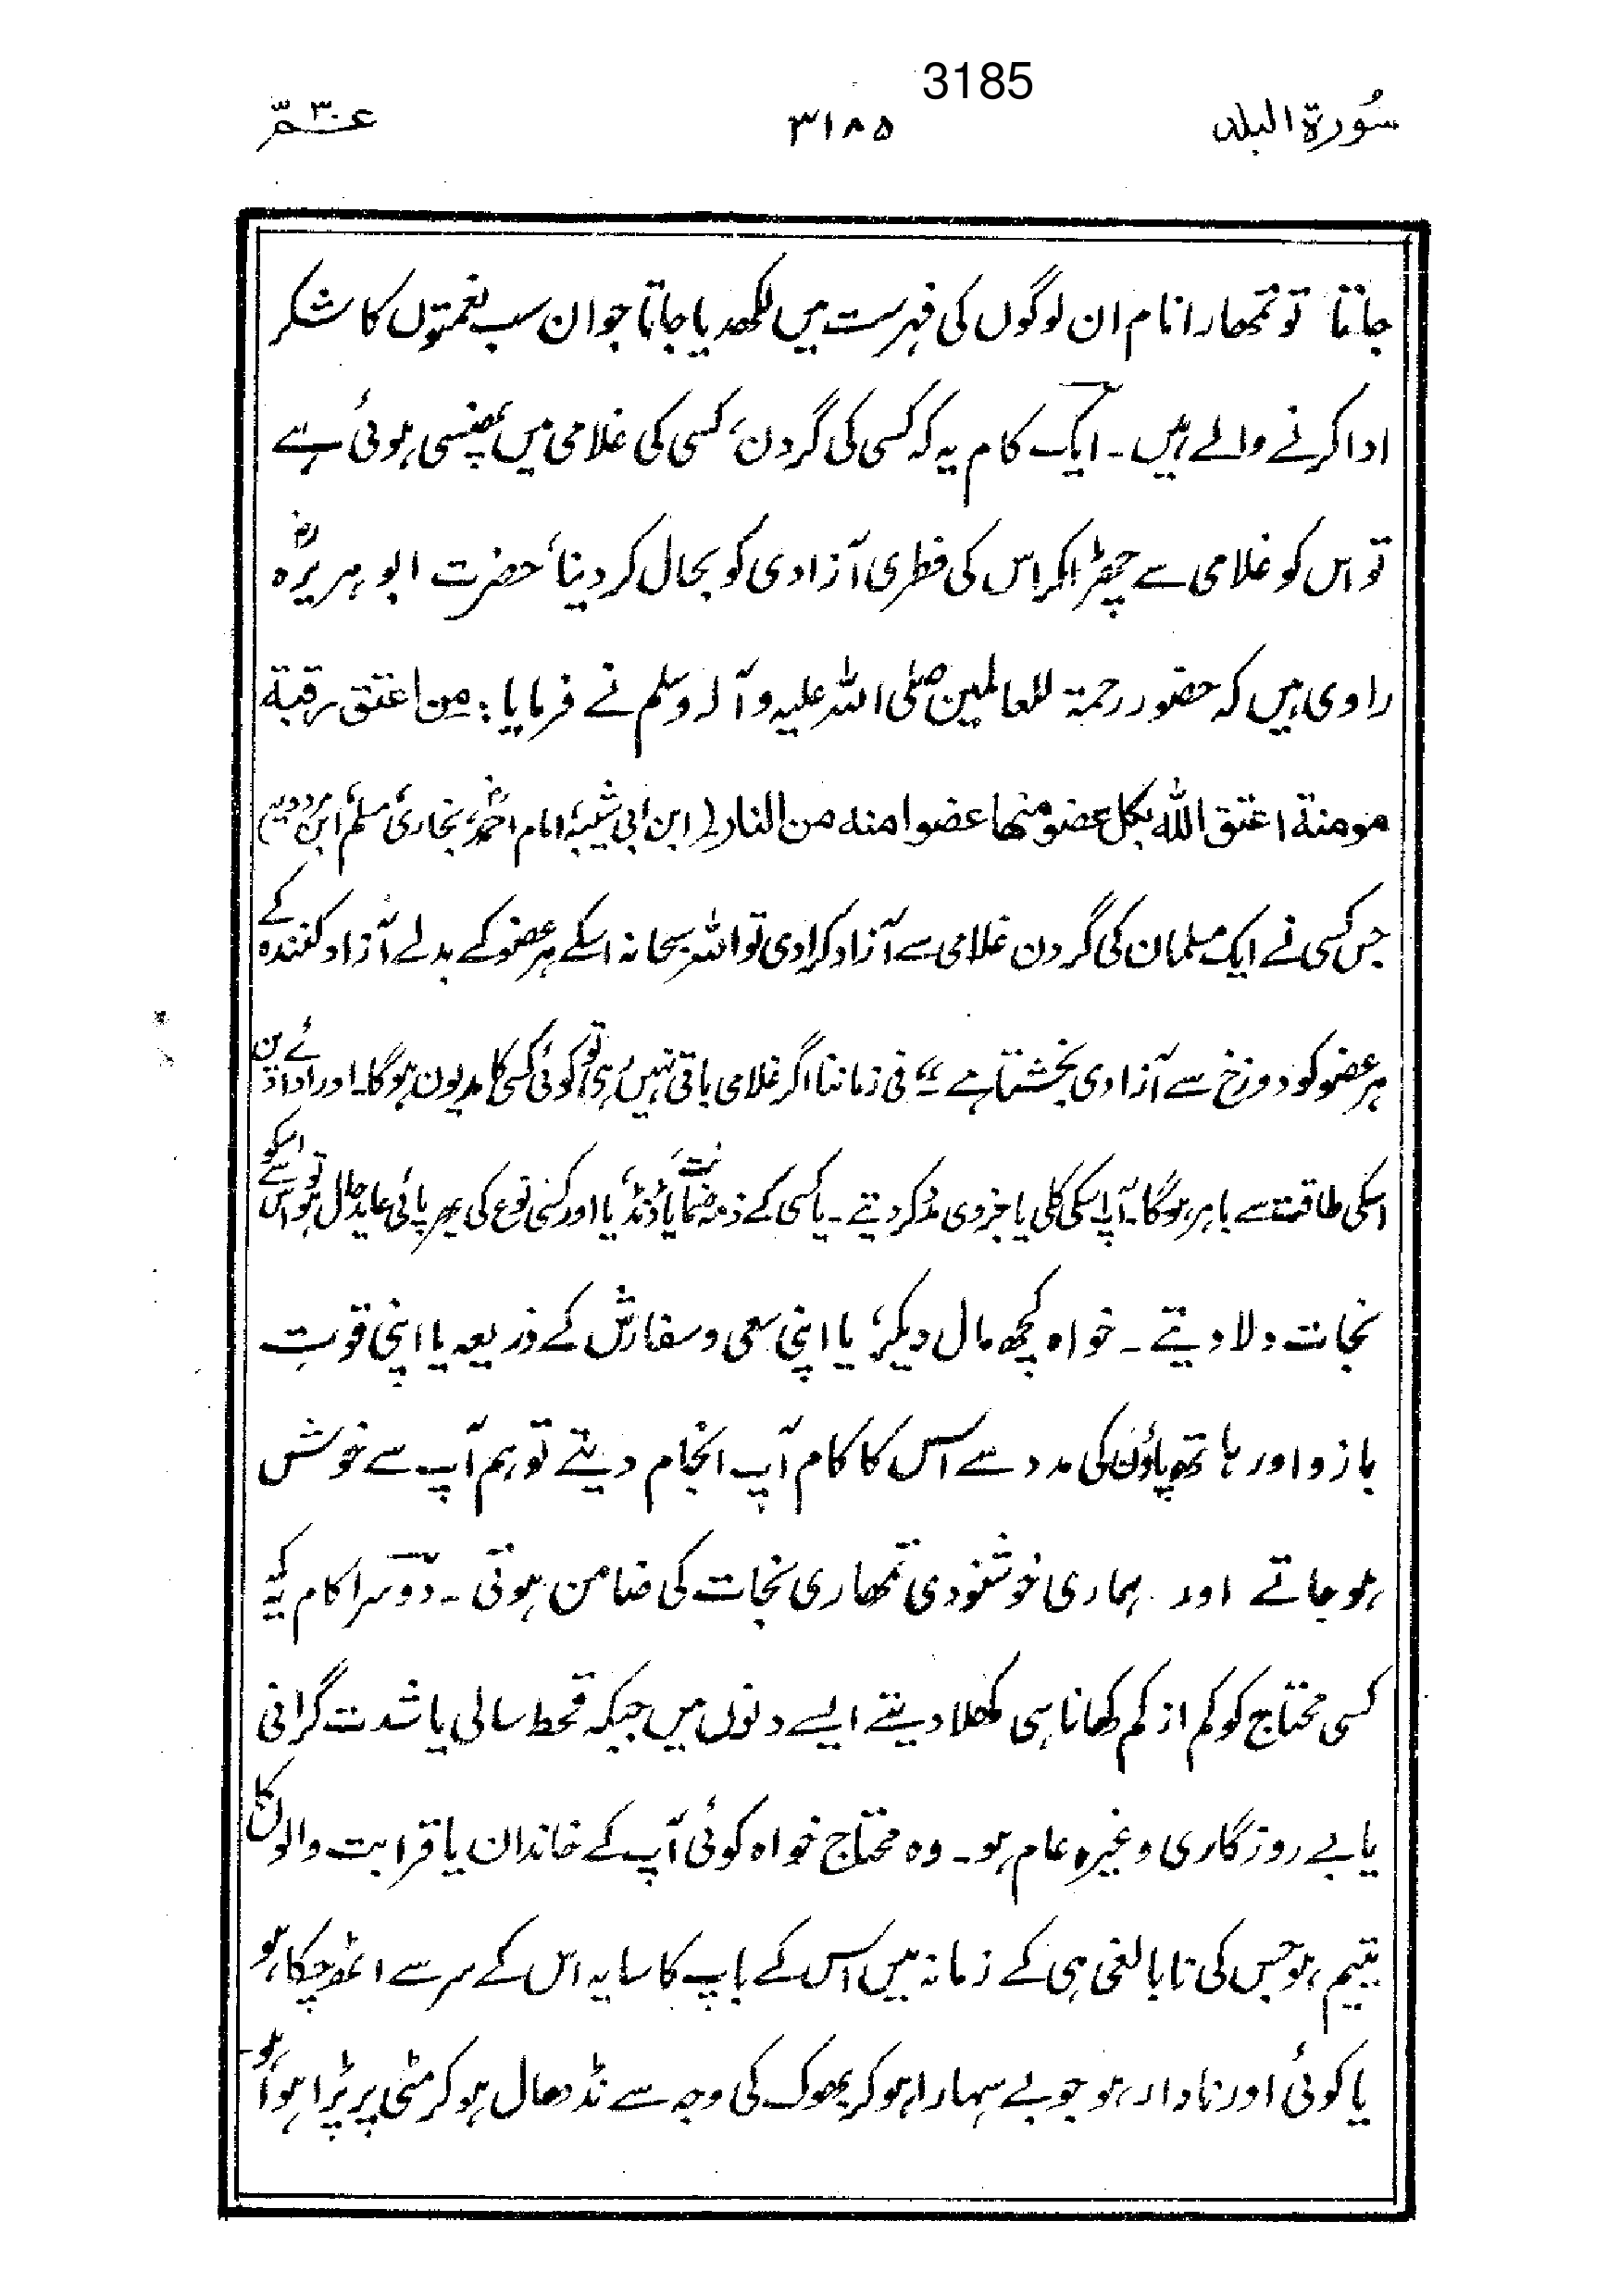 3185
سُورۃ البلد ۳۱۸۵ عمّ ۳۰
جانتا تو تمھارا نام ان لوگوں کی فہرست میں لکھدیا جاتا جو ان سب نعمتوں کا شکر
ادا کرنے والے ہیں۔ ایک کام یہ کہ کسی کی گردن، کسی کی غلامی میں پھنسی ہوئی ہے
تو اس کو غلامی سے چھڑا کر اس کی فطری آزادی کو بحال کر دینا، حضرت ابو ہریرہؓ
راوی ہیں کہ حضور رحمۃ للعالمین صلی اللہ علیہ وآلہ وسلم نے فرمایا: من اعتق رقبة
مومنة اعتق الله بكل عضو منها عضوا منه من النار (ابن ابی شیبہ، امام احمد، بخاری، مسلم، ابن مردویہ)
جس کسی نے ایک مسلمان کی گردن غلامی سے آزاد کرا دی تو اللہ سبحانہ اسکے ہر عضو کے بدلے آزاد کنندہ کے
ہر عضو کو دوزخ سے آزادی بخشتا ہے " فی زماننا اگر غلامی باقی نہیں رہی تو کوئی کسی کا مدیون ہوگا۔ اور ادائے
اسکی طاقت سے باہر ہوگا۔ آپ اسکی کلی یا جزوی مدد کر دیتے۔ یا کسی کے ذمہ ضمانت یا ڈنڈ، یا اور کسی نوع کی بھرپائی عاید حال ہو تو اسکو اس سے
نجات دلا دیتے۔ خواہ کچھ مال دیکر، یا اپنی سعی و سفارش کے ذریعہ یا اپنی قوتِ
بازو اور ہاتھ پاؤں کی مدد سے اس کا کام آپ انجام دیتے تو ہم آپ سے خوش
ہو جاتے اور ہماری خوشنودی تمھاری نجات کی ضامن ہوتی۔ دوسرا کام یہ کہ
کسی محتاج کو کم از کم کھانا ہی کھلا دیتے ایسے دنوں میں جبکہ قحط سالی یا شدت گرانی
یا بے روزگاری وغیرہ عام ہو۔ وہ محتاج خواہ کوئی آپ کے خاندان یا قرابت والوں کا
یتیم ہو جس کی نابالغی ہی کے زمانہ میں اس کے باپ کا سایہ اس کے سر سے اٹھ چکا ہو
یا کوئی اور نادار ہو جو بے سہارا ہو کر بھوک کی وجہ سے نڈھال ہو کر مٹی پر پڑا ہوا ہو۔